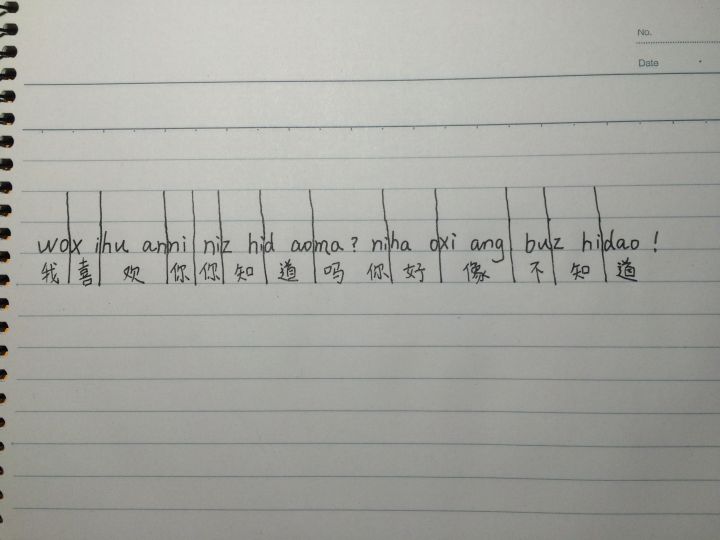 No.
Date
wox ihu anni niz hid aoma? niha oxi ang buz hidao!
我喜欢你你知道吗你好像不知道